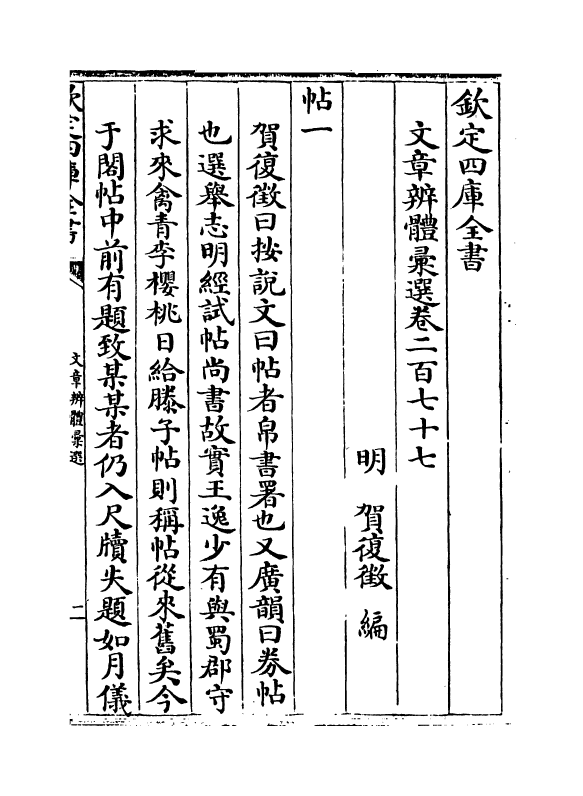 欽定四庫全書
文章辨體彚選卷二百七十七
明 賀復徵 編
帖一
賀復徵曰按説文曰帖者帛書署也又廣韻曰券帖
也選舉志明經試帖尚書故實王逸少有與蜀郡守
求來禽青李櫻桃日給滕子帖則稱帖從來舊矣今
于閣帖中前有題致某某者仍入尺牘失題如月儀
欽定四庫全書
文章辨體彚選
二